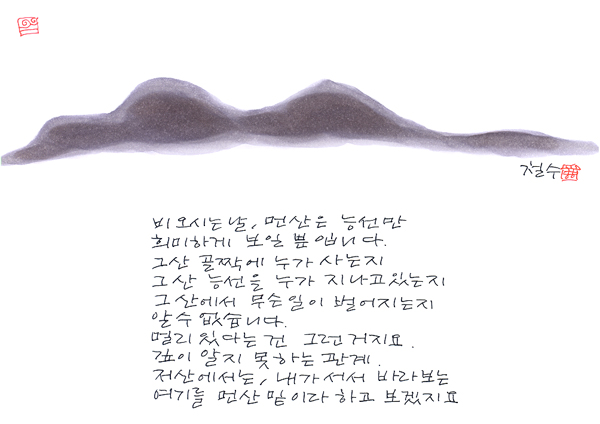 철수
비오시는날, 먼산은 능선만
희미하게 보일 뿐입니다.
그산 골짝에 누가 사는지
그산 능선을 누가 지나고있는지
그산에서 무슨일이 벌어지는지
알수 없습니다.
멀리 있다는건 그런거지요.
깊이 알지 못하는 관계.
저산에서는, 내가서서 바라보는
여기를 먼산 밑이라 하고 보겠지요